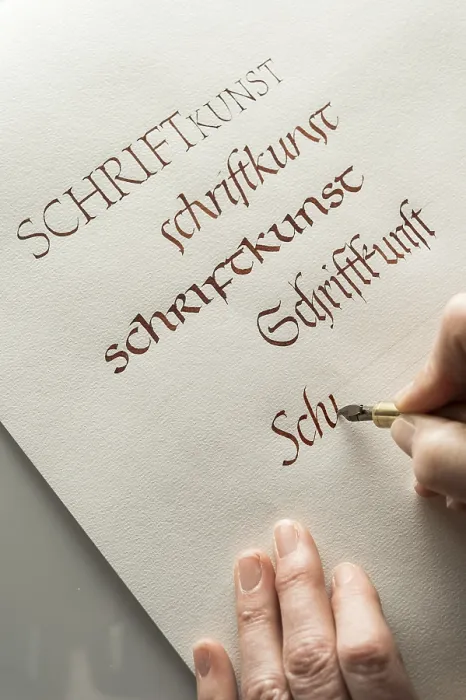 SCHRIFTKUNST
schriftkunst
schriftkunst
Schriftkunst
Sch